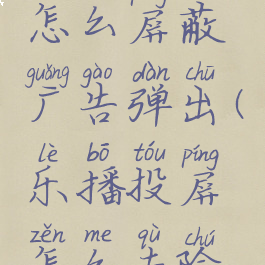 怎么屏蔽
guǎng gào dàn chū
广告弹出(
lè bō tóu píng
乐播投屏
zěn me qù chú
怎么去除